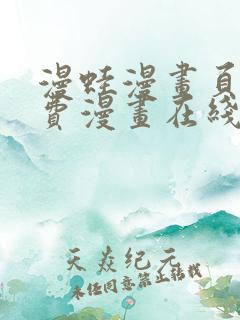 漫蛙漫畫頁
費漫畫在綫
天焱纪元
未经同意禁止转载